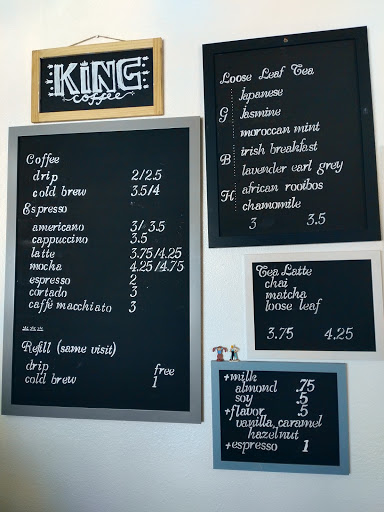 KING
coffee
Coffee
drip 2/2.5
cold brew 3.5/4
Espresso
americano 3/3.5
cappuccino 3.5
latte 3.75/4.25
mocha 4.25/4.75
espresso 2
cortado 3
caffè macchiato 3
Refill (same visit)
drip free
cold brew 1
Loose Leaf Tea
Japanese
G Jasmine
moroccan mint
B irish breakfast
lavender earl grey
H african rooibos
chamomile
3 3.5
Tea Latte
chai
matcha
loose leaf
3.75 4.25
+milk
almond .75
soy .5
+flavor .5
vanilla, caramel
hazelnut
+espresso 1